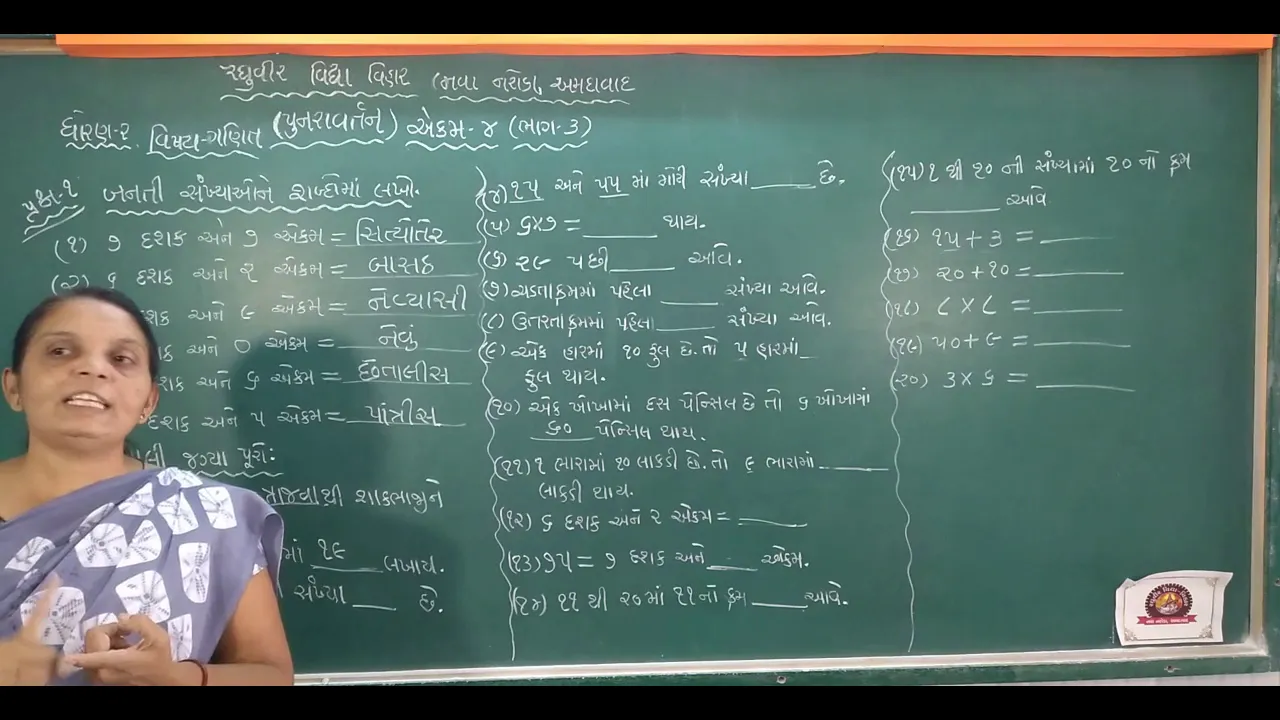 રઘુવીર વિદ્યા વિહાર (નવા નરોડા, અમદાવાદ
ધોરણ-૨ વિષય-ગણિત (પુનરાવર્તન) એકમ-૪ (ભાગ-૩)
પ્રશ્ન-૧ બનતી સંખ્યાઓને શબ્દોમાં લખો.
(૧) ૭ દશક અને ૭ એકમ = સિત્યોતેર
(૨) ૬ દશક અને ૨ એકમ = બાસઠ
શક અને ૯ એકમ = નેવ્યાસી
ક અને ૦ એકમ = નેવું
શક અને ૬ એકમ = છેંતાલીસ
દશક અને ૫ એકમ = પાંત્રીસ
લી જગ્યા પૂરો:
ત્રાજવાથી શાકભાજીને
માં ૧૯ લખાય.
સંખ્યા ____ છે.
(૪) ૧૫ અને ૫૫ માં મોટી સંખ્યા ____ છે.
(૫) ૬×૭ = ____ થાય.
(૬) ૨૯ પછી ____ આવે.
(૭) ચડતા ક્રમમાં પહેલા ____ સંખ્યા આવે.
(૮) ઉતરતા ક્રમમાં પહેલા ____ સંખ્યા આવે.
(૯) એક હારમાં ૧૦ ફુલ છે. તો ૫ હારમાં __
ફુલ થાય.
(૧૦) એક ખોખામાં દસ પેન્સિલ છે તો ૬ ખોખામાં
૬૦ પેન્સિલ થાય.
(૧૧) ૧ ભારામાં ૧૦ લાકડી છે. તો ૯ ભારામાં ____
લાકડી થાય.
(૧૨) ૬ દશક અને ૨ એકમ = ____
(૧૩) ૭૫ = ૭ દશક અને ____ એકમ.
(૧૪) ૧૧ થી ૨૦માં ૧૧નો ક્રમ ____ આવે.
(૧૫) ૧ થી ૨૦ ની સંખ્યામાં ૨૦ નો ક્રમ
____ આવે
(૧૬) ૧૫ + ૩ = ____
(૧૭) ૨૦ + ૧૦ = ____
(૧૮) ૮ × ૮ = ____
(૧૯) ૫૦ + ૯ = ____
(૨૦) ૩ × ૬ = ____